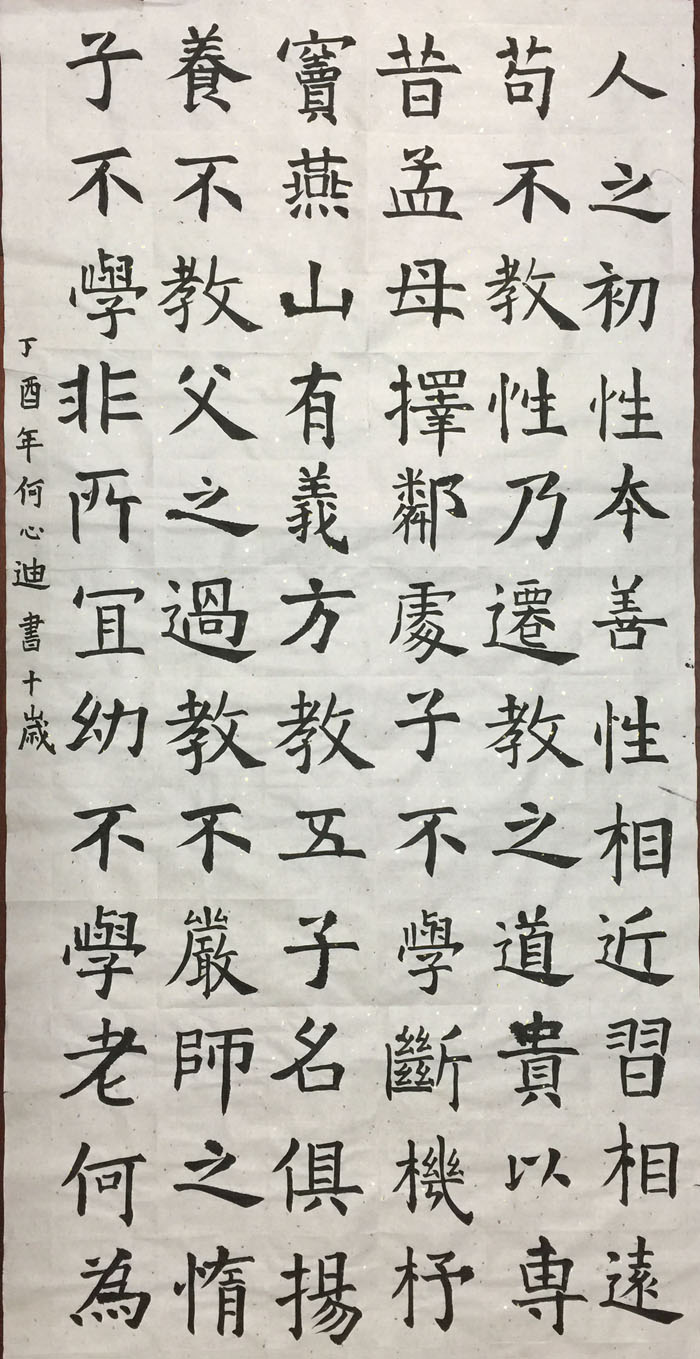 人之初性本善性相近習相遠
苟不教性乃遷教之道貴以專
昔孟母擇鄰處子不學斷機杼
竇燕山有義方教五子名俱揚
養不教父之過教不嚴師之惰
子不學非所宜幼不學老何為
丁酉年何心迪書十歲